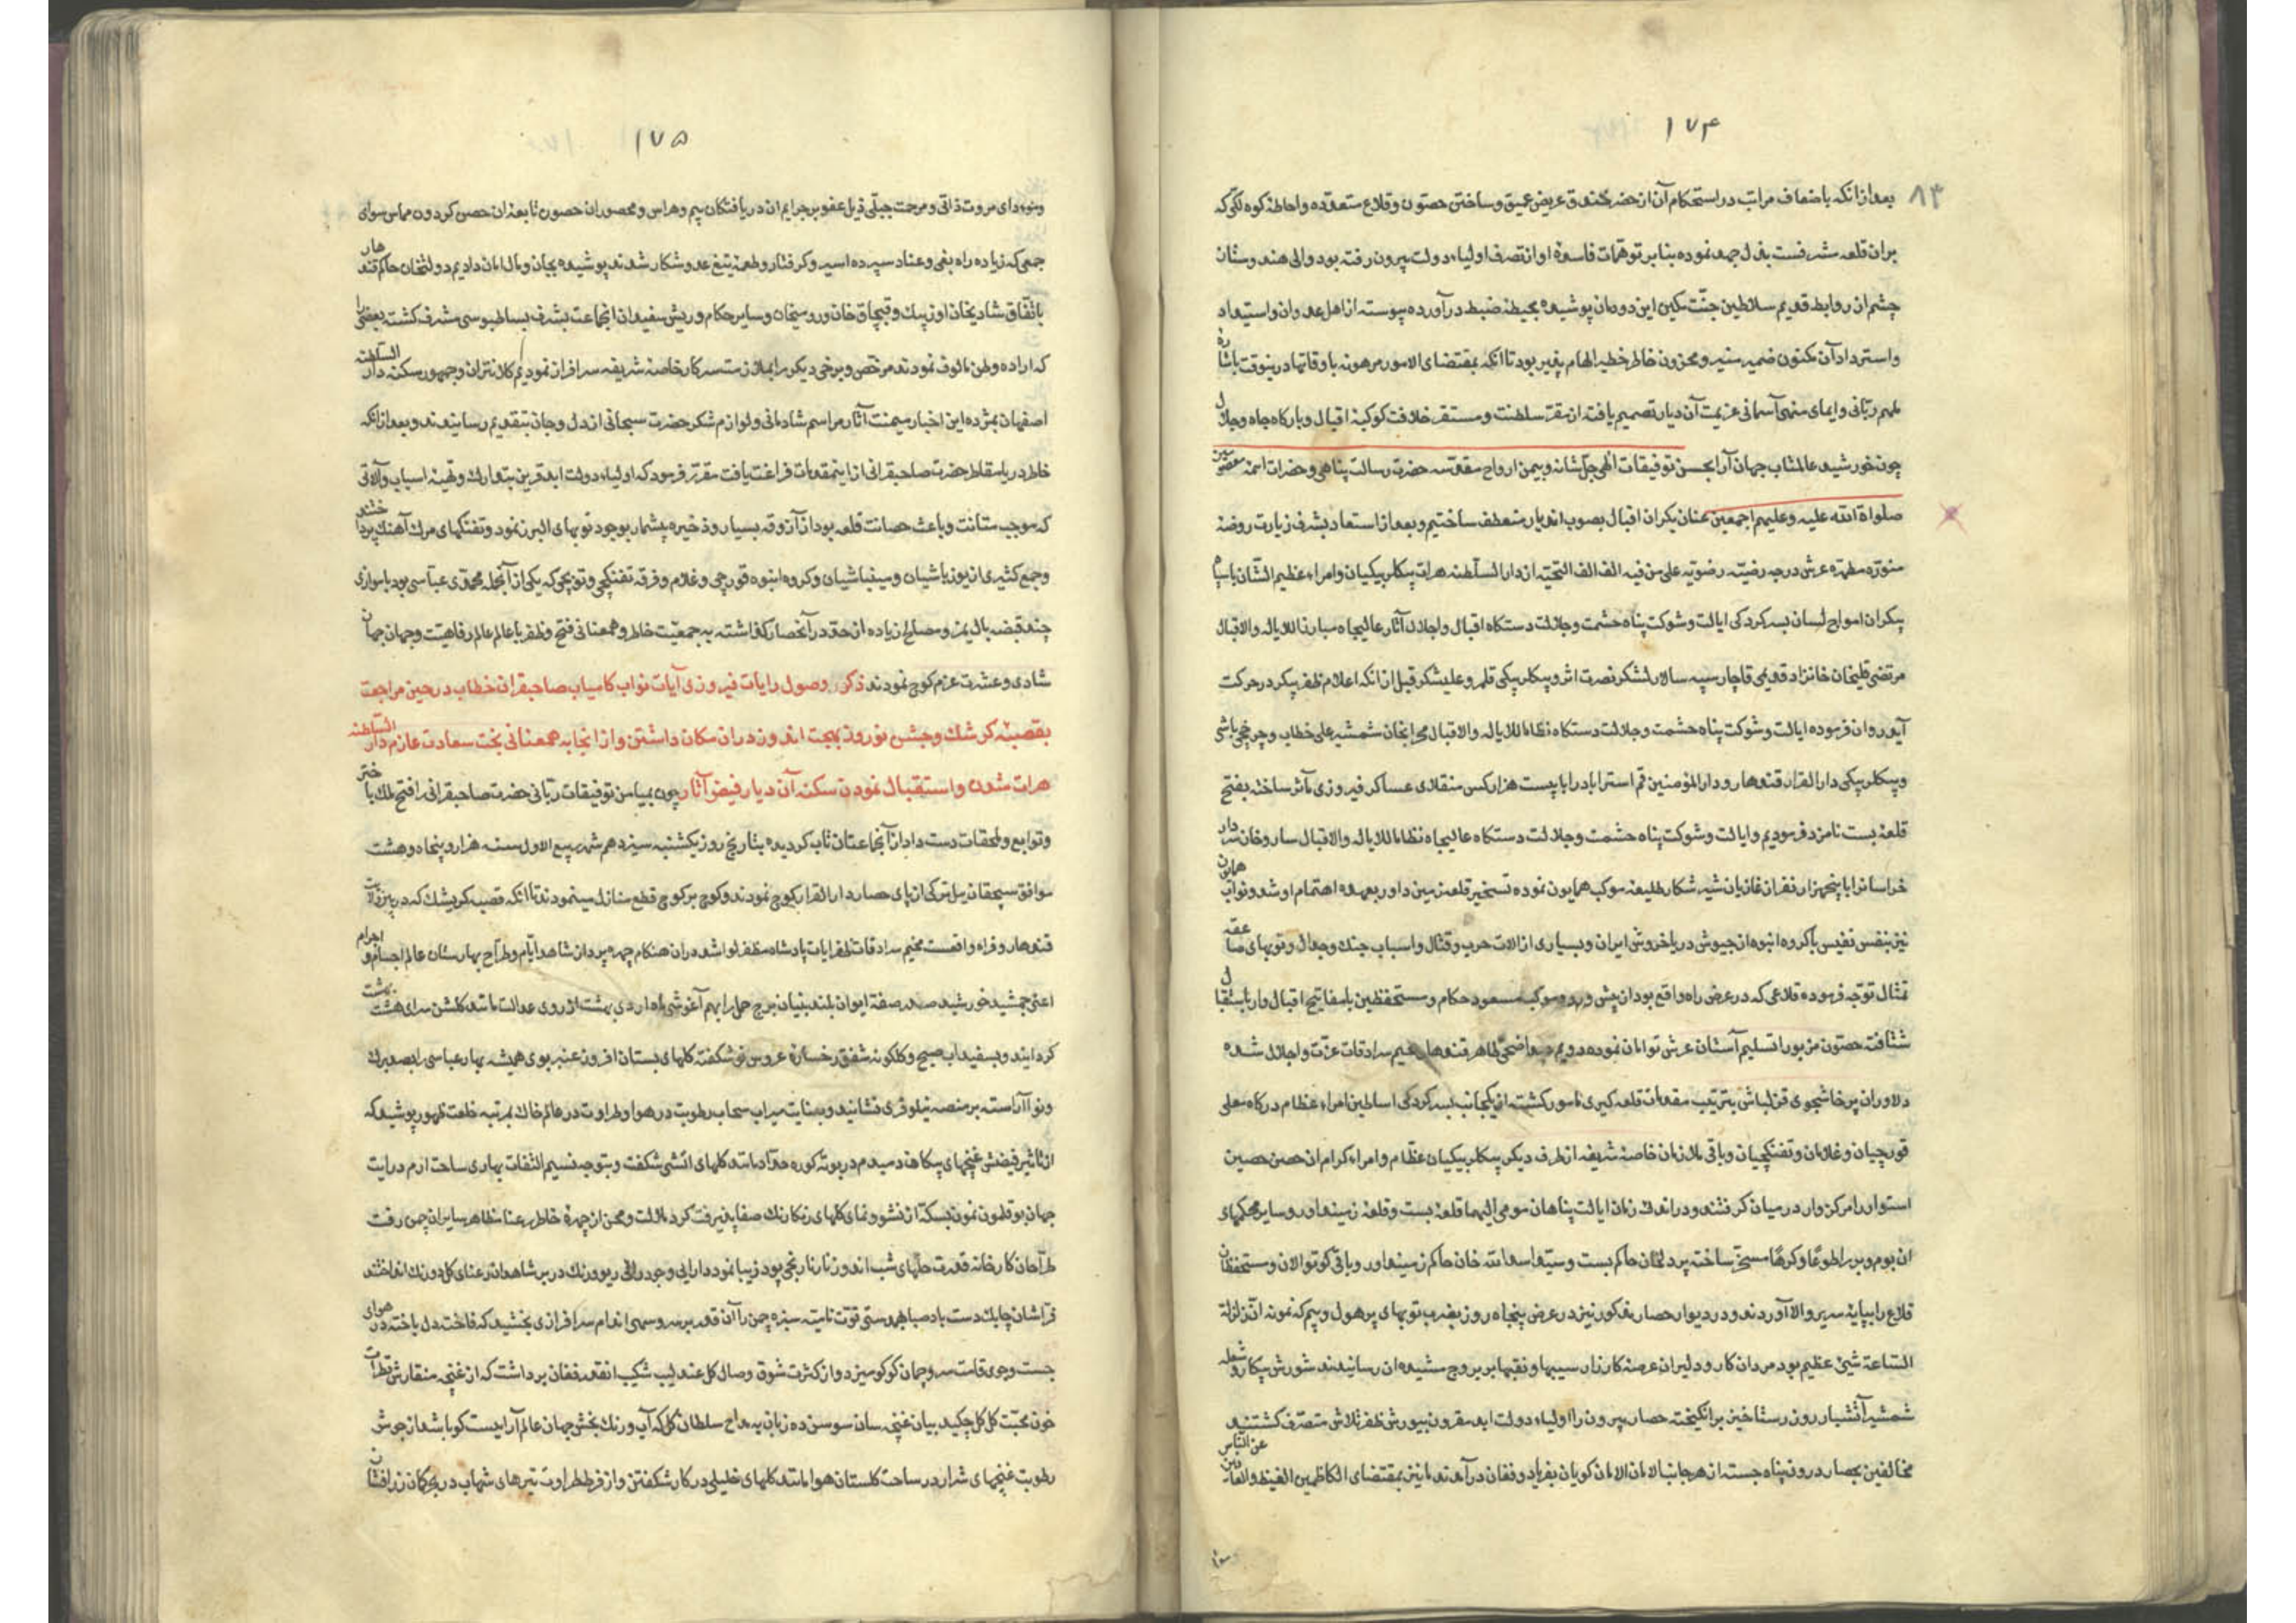 ۱۷۴
۸۳
بعد از انکه باضعاف مراتب در استحکام آن از حضر خندق عریض عمیق و ساختن حصون و قلاع متعدده و احاطهٔ کوه لکی که
بران قلعه مشرفست بذل جهد نموده بنابر توهمات فاسدهٔ او از تصرف اولیاء دولت بیرون رفته بود و والی هندوستان
چشم از روابط قدیم سلاطین جنت مکین این دودمان پوشیده بحیطهٔ ضبط درآورده پیوسته از اهل عدوان و استیعاد
و استرداد آن مکنون ضمیر منیر و مخزون خاطر خطیر الهام پذیر بود تا آنکه بمقتضای الامور مرهونه باوقاتها درینوقت باشاره
ملهم ربانی و ایمای منهی آسمانی عزیمت آن دیار تصمیم یافته از مقر سلطنت و مستقر خلافت کوکبهٔ اقبال و بارکاه جاه و جلال
چون خورشید عالمتاب جهان آرا بحسن توفیقات الهی جل شانه و بیمن ارواح مقدسه حضرت رسالت پناهی و حضرات ائمه معصومین
صلواة الله علیه و علیهم اجمعین عنان یکران اقبال بصوب اندیار منعطف ساختیم و بعد از استعاد بشرف زیارت روضهٔ
منوره مطهره عرش درجه رضیه رضویه علی من فیه الف الف التحیه از دار السلطنه هرات بیکلربیکیان و امراء عظیم الشان باسپاه
بیکران امواج لسان بسرکردکی ایالت و شوکت پناه حشمت و جلالت دستکاه اقبال و اجلال آثار عالیجاه مبارزا للایاله والاقبال
مرتضی قلیخان خانزاد قدیمی قاجار سپه سالار لشکر نصرت اثر و بیکلربیکی قلمرو علیشکر قبل از انکه اعلام ظفر پیکر در حرکت
آید روان فرموده ایالت و شوکت پناه حشمت و جلالت دستکاه نظاما للایاله والاقبال محرابخان شمشیر علی خطاب و چرخچی باشی
و بیکلربیکی دار القرار قندهار و دار المؤمنین قم استراباد را با بیست هزار کس منقلای عساکر فیروزی مآثر ساخته بفتح
قلعهٔ بست نامزد فرمودیم و ایالت و شوکت پناه حشمت و جلالت دستکاه عالیجاه نظاما للایاله والاقبال ساروخان سردار
خراسانرا با پنجهزار نفر از غازیان شیر شکار طلیعهٔ موکب همایون نموده تسخیر قلعهٔ زمین داور بعهدهٔ اهتمام او شد و نواب همایون
نیز بنفس نفیس با کروه انبوه از جیوش دریا خروش ایران و بسیاری از الات حرب و قتال و اسباب جنک و جدال و توبهای صاعقه
تمثال توجه فرموده قلاعی که در عرض راه واقع بود از پیش ورود موکب مسعود حکام و مستحفظین با مفاتیح اقبال وار باستقبال
شتافته حصون مزبور را تسلیم آستان عرش توامان نموده
دلاوران پرخاشجوی قزلباش بترتیب مقدمات قلعه کیری مامور کشته از یکجانب بسرکردکی اساطین امراء عظام درکاه معلی
قورچیان و غلامان و تفنکچیان و باقی ملازمان خاصهٔ شریفه از طرف دیکر بیکلربیکیان عظام و امراء کرام ان حصن حصین
استوار را مرکز وار در میان کرفتند و در اندک زمان ایالت پناهان مومی الیهما قلعهٔ بست و قلعهٔ زمیندارو و سایر محکمهای
ان بوم و بر را طوعا و کرها مسخر ساخته پردلخان حاکم بست و سید اسدالله خان حاکم زمینداور و باقی کوتوالان و مستحفظان
قلاع را بپایهٔ سریر والا آوردند و در دیوار حصار مذکور نیز در عرض پنجاه روز بضرب توبهای پر هول و بیم که نمونه ان زلزلة
الساعة شئ عظیم بود مردان کار و دلیران عرصهٔ کارزار سیبها و نقبها بر بروج مشیده ان رسانیدند شورش پیکار و شعله
شمشیر آتشبار روز رستاخیز برانکیخته حصار بیرون را اولیاء دولت ابد مقرون بیورش ظفر تلاش متصرف کشتند
مخالفین بحصار درون پناه جسته از هر جانب الامان الامان کویان بفریاد و فغان درآمدند ما نیز بمقتضای الکاظمین الغیظ والعافین عن الناس
۱۷۵
و مؤدای مروت ذاتی و مرحمت جبلی ذیل عفو بر جرایم ان دریافتکان بیم و هراس و محصوران حصون تابعهٔ ان حصن کردون مماس سوای
جمعی که زیاده راه بغی و عناد سپرده اسیر و کرفتار و طعمهٔ تیغ عدو شکار شدند پوشیده بجان و مال امان دادیم دولتخان حاکم قندهار
باتفاق شادیخان اوزبک و قبچاق خان و نورو میخان و سایر حکام و ریش سفیدان انجماعت بشرف بساطبوسی مشرف کشته بعضی را
که اراده وطن مالوف نمودند مرخص و برخی دیکر را بملازمت سرکار خاصهٔ شریفه سرافراز نمودیم کلانتران و جمهور سکنه دار السلطنه
اصفهان بمژده این اخبار میمنت آثار مراسم شادمانی و لوازم شکر حضرت سبحانی از دل و جان بتقدیم رسانیدند و بعد از انکه
خاطر دریا مقاطر حضرت صاحبقرانی از اینمقدمات فراغت یافت مقرر فرمود که اولیاء دولت ابد قرین بتدارک و تهیهٔ اسباب و آلاتی
که موجب متانت و باعث حصانت قلعه بود از آزوقه بسیار و ذخیره بیشمار بوجود توبهای البرز نمود و تفنکهای مرک آهنک پرداختند
و جمع کثیری از یوزباشیان و مینباشیان و کروه انبوه قورچی و غلام و فرقه تفنکچی و توپچی که یکی از آنجمله محمدی عباسی بود با موازی
چند قبضه بالیمز و مصالح زیاده از حد در آنحصار کذاشته به جمعیت خاطر و همعنانی فتح و ظفر با عالم عالم رفاهیت و جهان جهان
شادی و عشرت عزم کوچ نمودند ذکر وصول رایات فیروزی آیات نواب کامیاب صاحبقران خطاب در حین مراجعت
بقصبهٔ کرشک و جشن نوروز بهجت اندوز در ان مکان داشتن و از انجا به همعنانی بخت سعادت عازم دار السلطنه
هرات شدن و استقبال نمودن سکنه آن دیار فیض آثار چون بمیامن توفیقات ربانی حضرت صاحبقرانی را فتح ملک باختر
و توابع و ملحقات دست داد از آنجا عنان تاب کردیده بتاریخ روز یکشنبه سیزدهم شهر ربیع الاول سنه هزار و پنجاه و هشت
موافق سیچقان ئیل ترکی از پای حصار دار القرار کوچ نمودند و کوچ بر کوچ قطع منازل مینمودند تا آنکه قصبه کریشک که در بین ولایت
قندهار و فراه واقعست مخیم سرادقات ظفر ایات پادشاه مظفر لوا شد در ان هنکام چهره پرداز شاهد ایام و طراح بهارستان عالم اجسام و اجرام
اعنی جمشید خورشید صدر صفهٔ ایوان بلند بنیان برج حمل را بهم آغوشی ماه اردی بهشت از روی عدالت مانند کلشن سرای هشت بهشت
کردانید و بسفیداب صبح و کلکونه شفق رخسارهٔ عروس نو شکفته کلهای بستان افروز عنبر بوی همیشه بهار عباسی را بصد برک
و نوا آراسته بر منصه نیلوفری نشانید و بعنایت میراب سحاب رطوبت در هوا و طراوت در عالم خاک بمرتبه خلعت ظهور پوشید که
از تاثیر فیضش غنچهای پیکان دمیدم در بوتهٔ کوره حداد مانند کلهای اتشی شکفت و بتوجه نسیم التفات بهاری ساحت ارم درایت
جهان بوقلمون نمون بسکه از نشو و نمای کلهای رنکارنک صفا پذیرفت کرد ملالت و محن از چهرهٔ خاطر رعنا مظاهر سایران چمن رفت
طراحان کارخانه قدرت حلهای شب اندوز نارنجی پود زیبا نمود دارایی وجود والای ریو ورنک در بر شاهدان رعنای کل دو رنک انداختند
فراشان چابک دست باد صبا بچرب دستی قوت نامیه سبزه چمن را آن قدر سر و سهی اندام سرافرازی بخشید که فاخته دل باخته در هوای
جست و جوی قامت سرو چمان کوکو میزد و از کثرت شوق وصال کل عندلیب شکیب انقدر فغان برداشت که از غنچه منقارش قطرات
خون محبت کل کل چکید بیان غنچه سان سوسن ده زبان به مداح سلطان کل که آب و رنک بخش جهان عالم آراییست کویا شد از جوش
رطوبت غنچهای شرار در ساحت کلستان هوا مانند کلهای خلیلی در کار شکفتن و از فرط طراوت تیرهای شهاب در برج کمان زرافشان